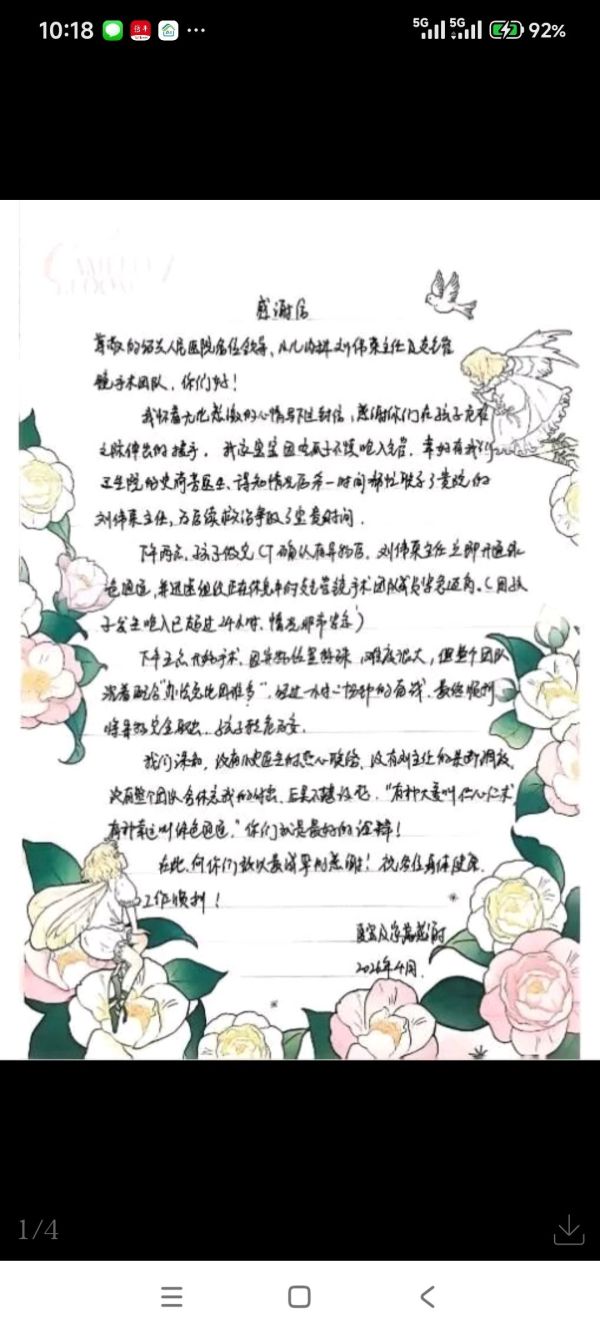 10:18
5G 5G 92%
感谢信
尊敬的韶关人民医院各位领导、儿内科刘伟荣主任及支气管
镜手术团队，你们好！
我怀着无比感激的心情写下这封信，感谢你们在孩子危难
之际伸出的援手。我家宝宝因瓜子不慎呛入气管，幸好有我们
卫生院的史荷香医生、得知情况后第一时间帮忙联系了贵院的
刘伟荣主任，为后续救治争取了宝贵时间。
下午两点，孩子做完CT确认有异物后，刘伟荣主任立即开通绿
色通道，并迅速组织正在休息中的支气管镜手术团队成员紧急返岗。（因孩
子发生呛入已超过24小时、情况非常紧急）
下午五点开始手术，因异物位置特殊，难度很大，但整个团队
"办法总比困难多"，经过一个
将异物完全取出，孩子转危为安。
我们深知，没有史医生的热心联络、没有刘主任的果断调度、
没有整个团队舍休忘我的付出，后果不堪设想。"有种大爱叫仁心仁术，
有种幸运叫绿色通道。"你们就是最好的诠释！
在此，向你们致以最诚挚的感谢！祝各位身体健康、
工作顺利！
2026年4月.
1/4